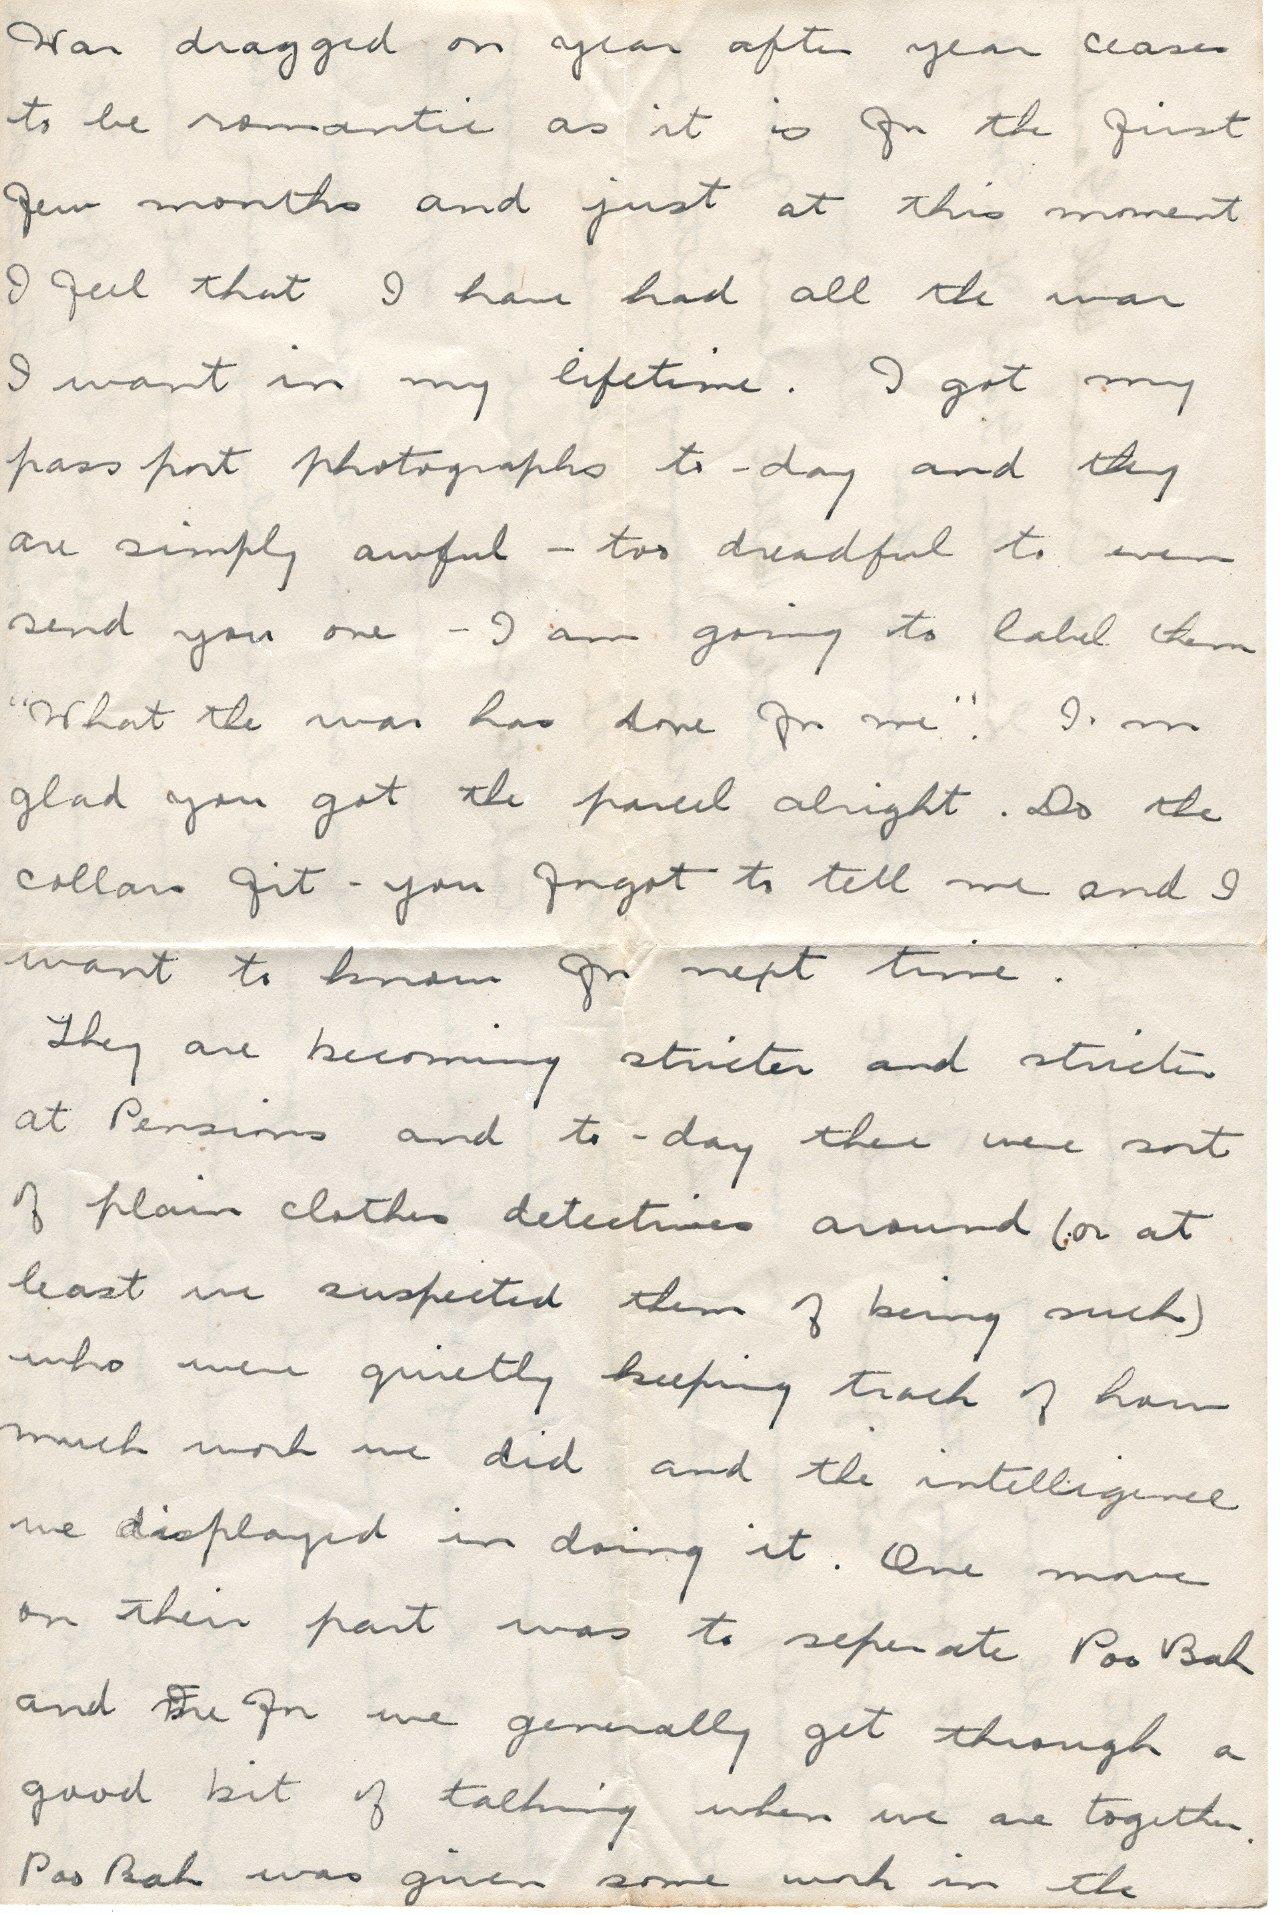 War dragged on year after year ceases
to be romantic as it is for the first
few months and just at this moment
I feel that I have had all the war
I want in my lifetime. I got my
pass port photographs to-day and they
are simply awful - too dreadful to even
send you one - I am going to label them
"What the war has done for me". I'm
glad you got the parcel alright. Do the
collars fit - you forgot to tell me and I
want to know for next time.
They are becoming stricter and stricter
at Pensions and to-day there were sort
of plain clothes detectives around (or at
least we suspected them of being such)
who were quietly keeping track of how
much work we did and the intelligence
we displayed in doing it. One move
on their part was to seperate Poo Bah
and me for we generally get through a
good bit of talking when we are together.
Poo Bah was given some work in the